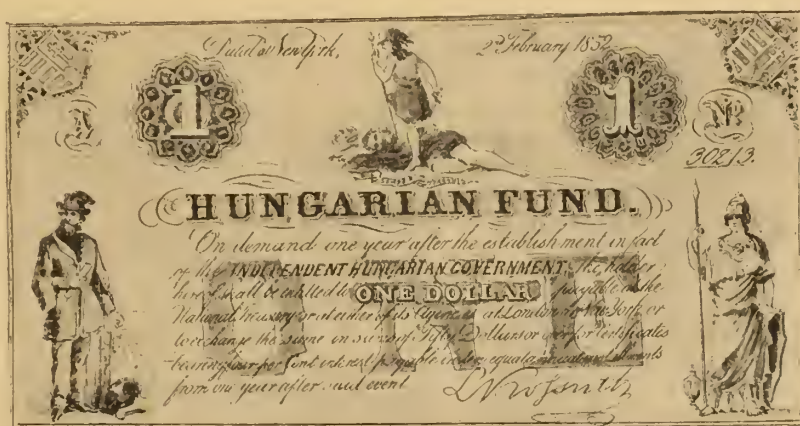 Dated at New York, 2nd February 1852
1 1
A No
30213.
HUNGARIAN FUND.
On demand one year after the establishment in fact
of the INDEPENDENT HUNGARIAN GOVERNMENT, the holder
hereof shall be entitled to ONE DOLLAR payable at the
National Treasury or at either of its Agencies at London or New York, or
to exchange the same in sums of Fifty Dollars or over for Certificates
bearing four per Cent interest payable in ten equal annual instalments
from one year after said event
ONE